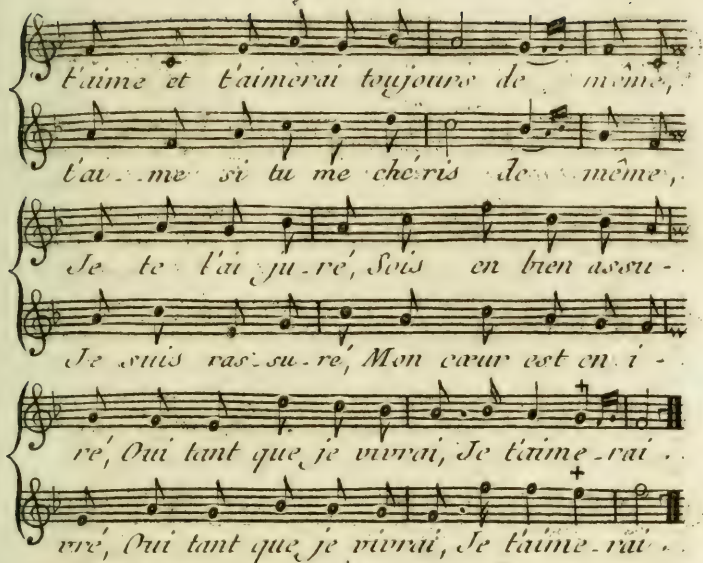 t'aime et t'aimerai toujours de même,
t'ai - me si tu me chéris de même,
Je te l'ai ju - ré, Sois en bien assu -
Je suis ras - su - ré, Mon cœur est en i -
ré, Oui tant que je vivrai, Je t'aime - rai .
vré, Oui tant que je vivrai, Je t'aime - rai .